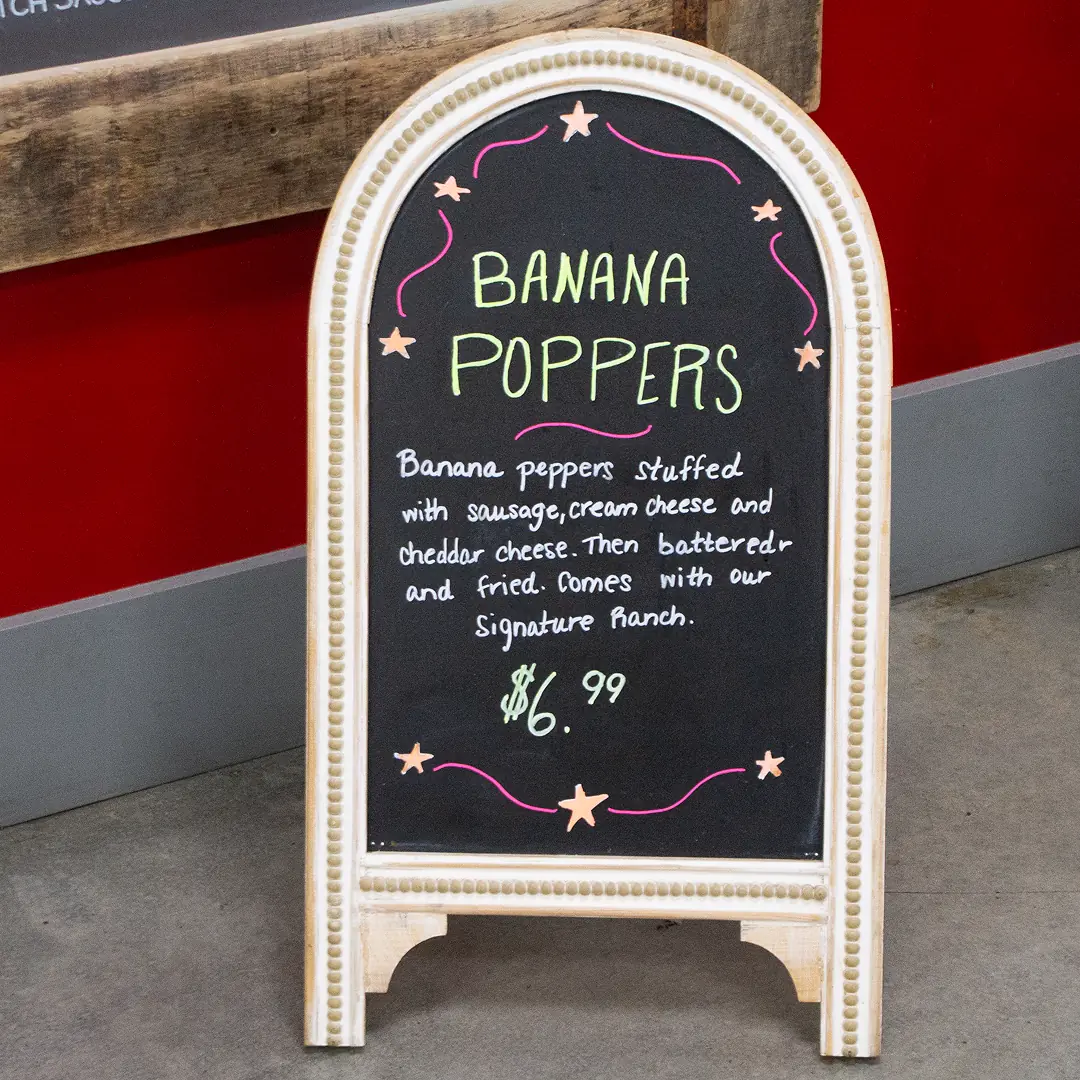 BANANA
POPPERS
Banana peppers stuffed
with sausage, cream cheese and
cheddar cheese. Then battered
and fried. Comes with our
Signature Ranch.
$6.99